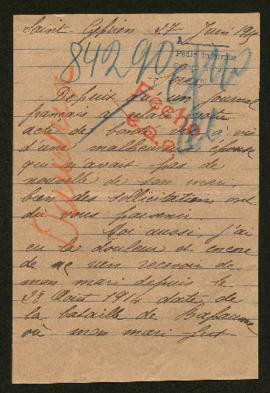 Saint Cyprien 27 Juin 19
84290
Depuis qu'un journal
français a relaté votre
acte de bonté vis à vis
d'une malheureuse épouse
qui n'avait pas de
nouvelle de son mari,
bien des sollicitations ont
dû vous parvenir.
Moi aussi, j'ai
eu la douleur et encore
de ne rien recevoir de
mon mari depuis le
28 Août 1914 date de
la bataille de Bapaume
où mon mari fut